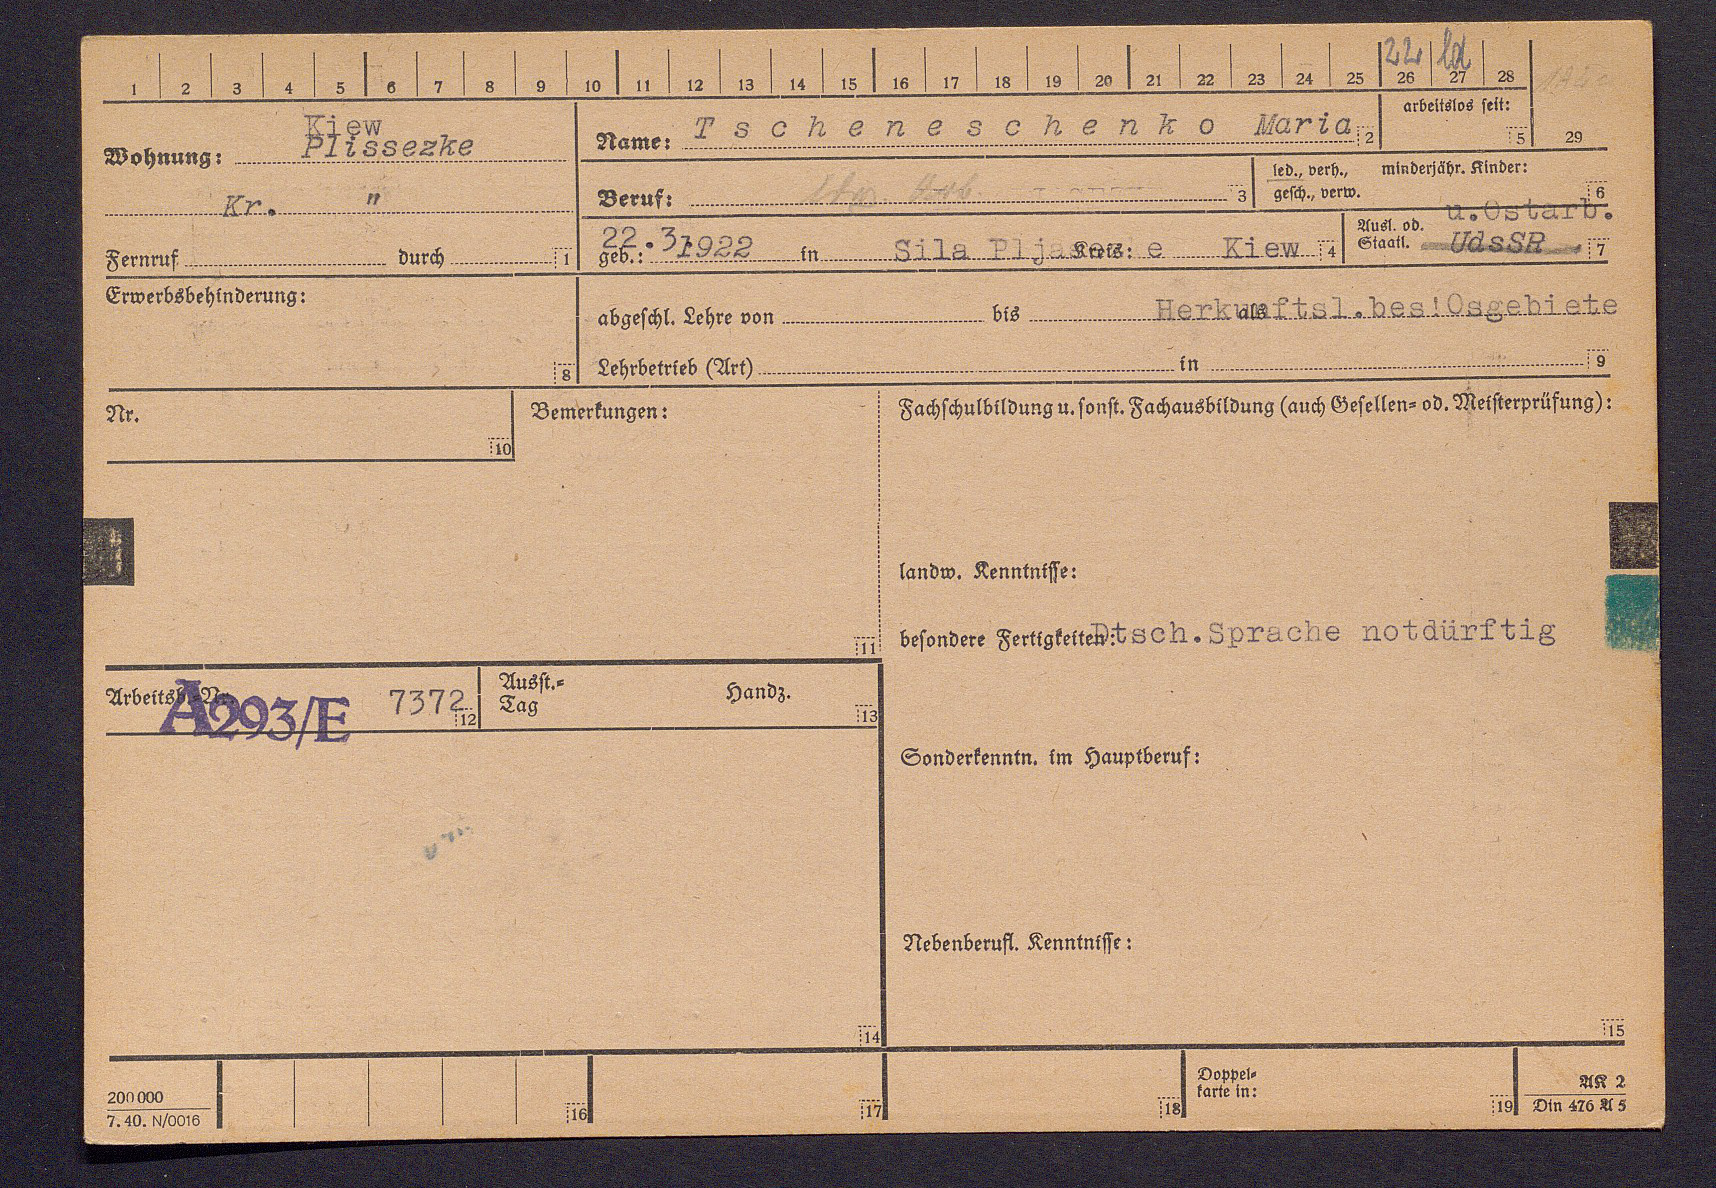 22 ld
1 2 3 4 5 6 7 8 9 10 11 12 13 14 15 16 17 18 19 20 21 22 23 24 25 26 27 28
29
Kiew
Wohnung: Plissezke
Kr. "
Fernruf durch 1
Name: Tscheneschenko Maria 2
arbeitslos seit: 5
Beruf: 3
led., verh., minderjähr. Kinder:
gesch., verw. 6
22.3.1922
geb.: in Sila Kreis: Kiew 4
u.Ostarb.
Ausl. od.
Staatl. UdsSR 7
Erwerbsbehinderung:
8
abgeschl. Lehre von bis als Herkunftsl.bes!Osgebiete
Lehrbetrieb (Art) in 9
Nr.
10
Bemerkungen:
11
Fachschulbildung u. sonst. Fachausbildung (auch Gesellen- od. Meisterprüfung):
landw. Kenntnisse:
besondere Fertigkeiten: Dtsch.Sprache notdürftig
Arbeitsb.-Nr. A293/E 7372 12
Ausst.-
Tag Handz. 13
Sonderkenntn. im Hauptberuf:
Nebenberufl. Kenntnisse:
14
15
200 000
7. 40. N/0016
16
17
18
Doppel-
karte in: 19
AK 2
Din 476 A 5